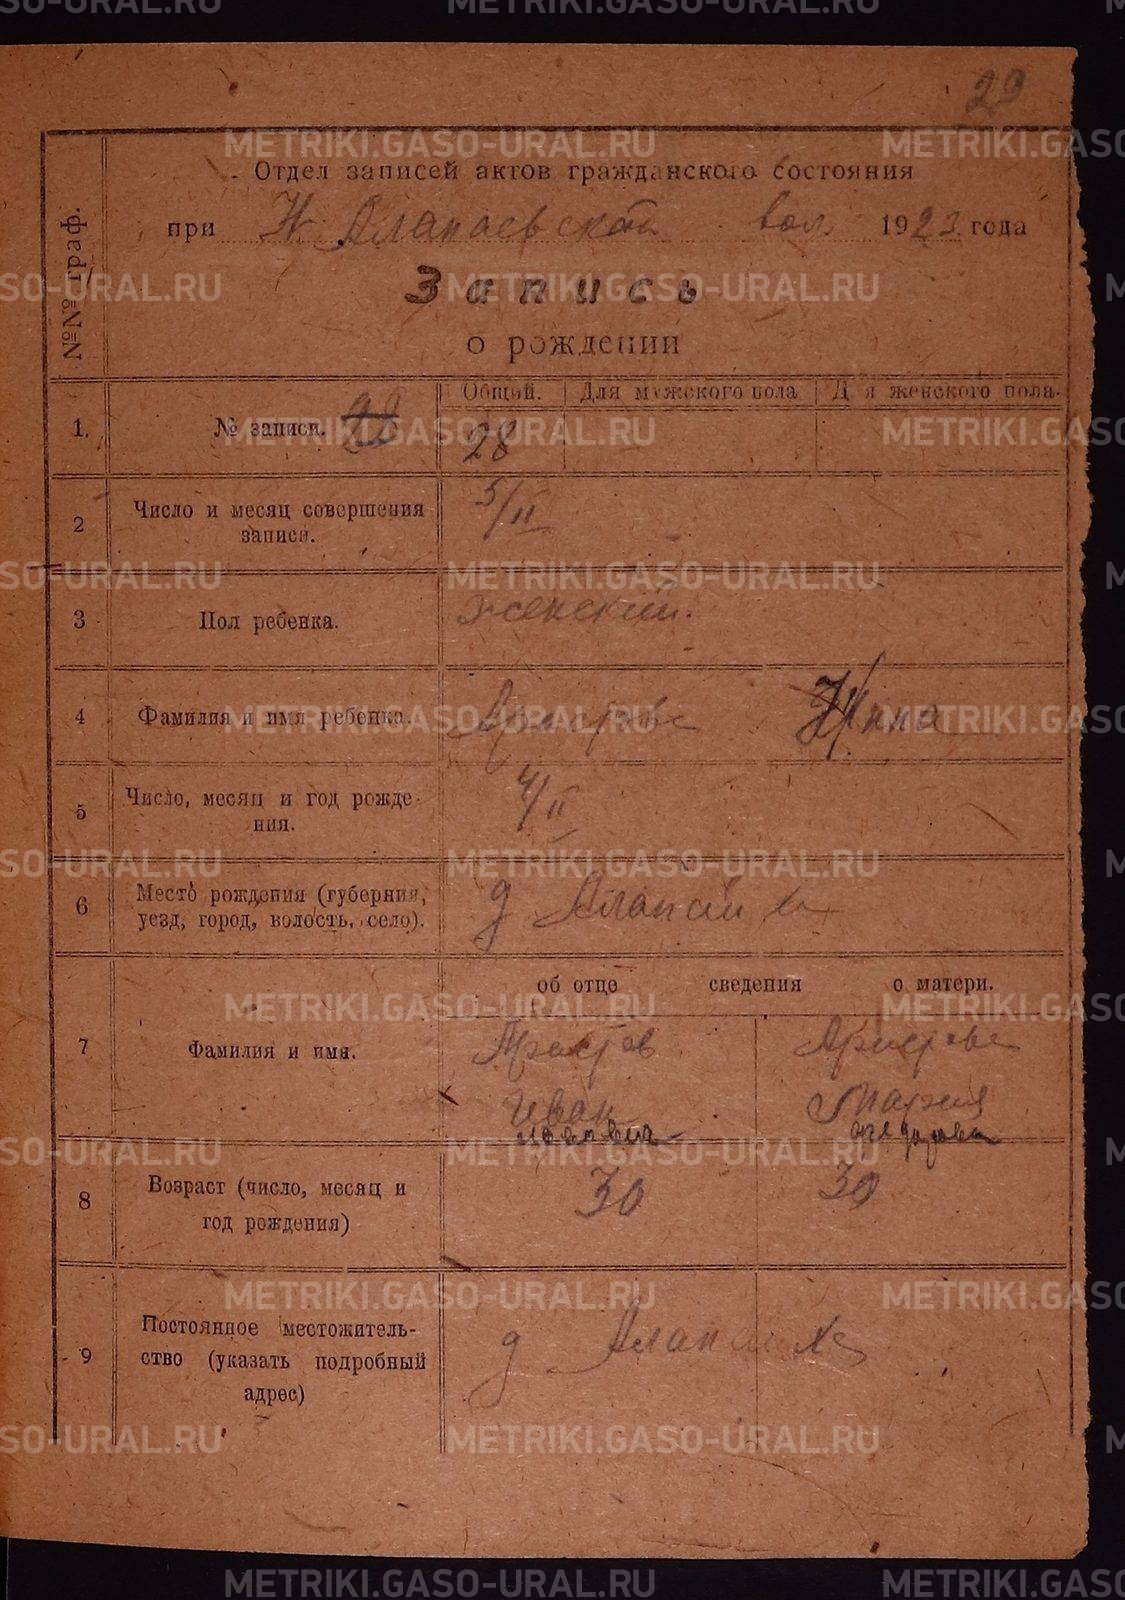 29
Отдел записей актов гражданского состояния
при Н Алапаевской вол. 1923 года
№№ граф.
Запись
о рождении
Общий. Для мужского пола Д я женского пола.
1. № записи. 28
2 Число и месяц совершения записи. 5/II
3 Пол ребенка. женский.
4 Фамилия и имя ребенка. Аристова Нина
5 Число, месяц и год рожде-
ния. 4/II
6 Место рождения (губерния,
уезд, город, волость, село). д Алапаиха
об отце сведения о матери.
7 Фамилия и имя. Аристов Аристова
Иван Мария
8 Возраст (число, месяц и
год рождения) 30 30
9 Постоянное местожитель-
ство (указать подробный
адрес) д Алапаиха
METRIKI.GASO-URAL.RU